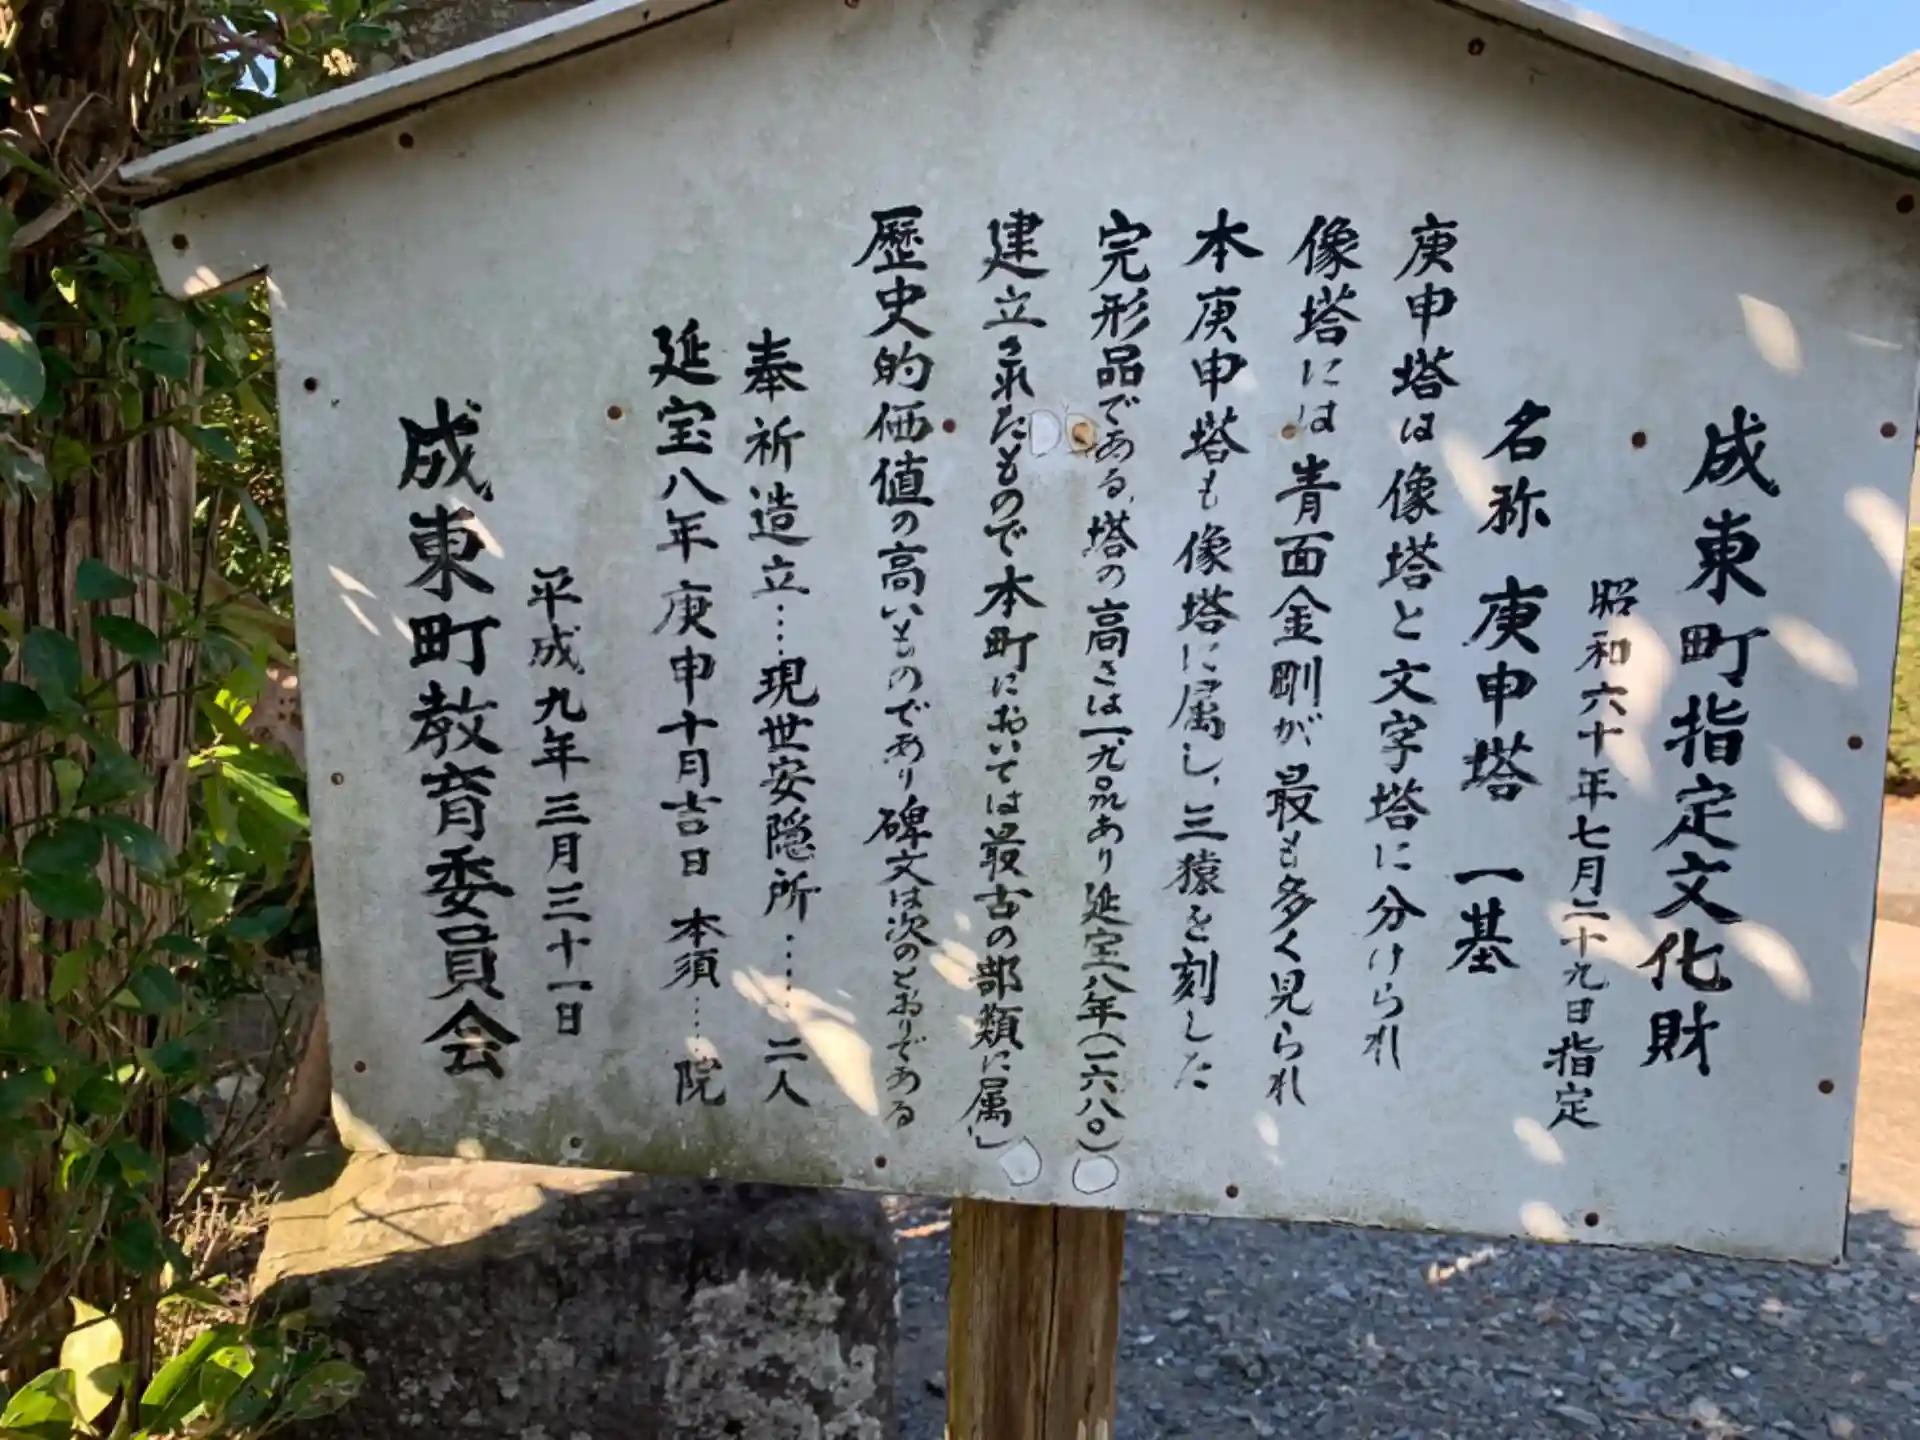 成東町指定文化財
昭和六十年七月二十九日指定
名称 庚申塔 一基
庚申塔は像塔と文字塔に分けられ
像塔には青面金剛が最も多く見られ
本庚申塔も像塔に属し、三猿を刻した
完形品である。塔の高さは一九〇㎝あり延宝八年(一六八〇)
建立されたもので本町においては最古の部類に属し
歴史的価値の高いものであり碑文は次のとおりである
奉祈造立……現世安隠所……二人
延宝八年庚申十月吉日 本須……院
平成九年三月三十一日
成東町教育委員会